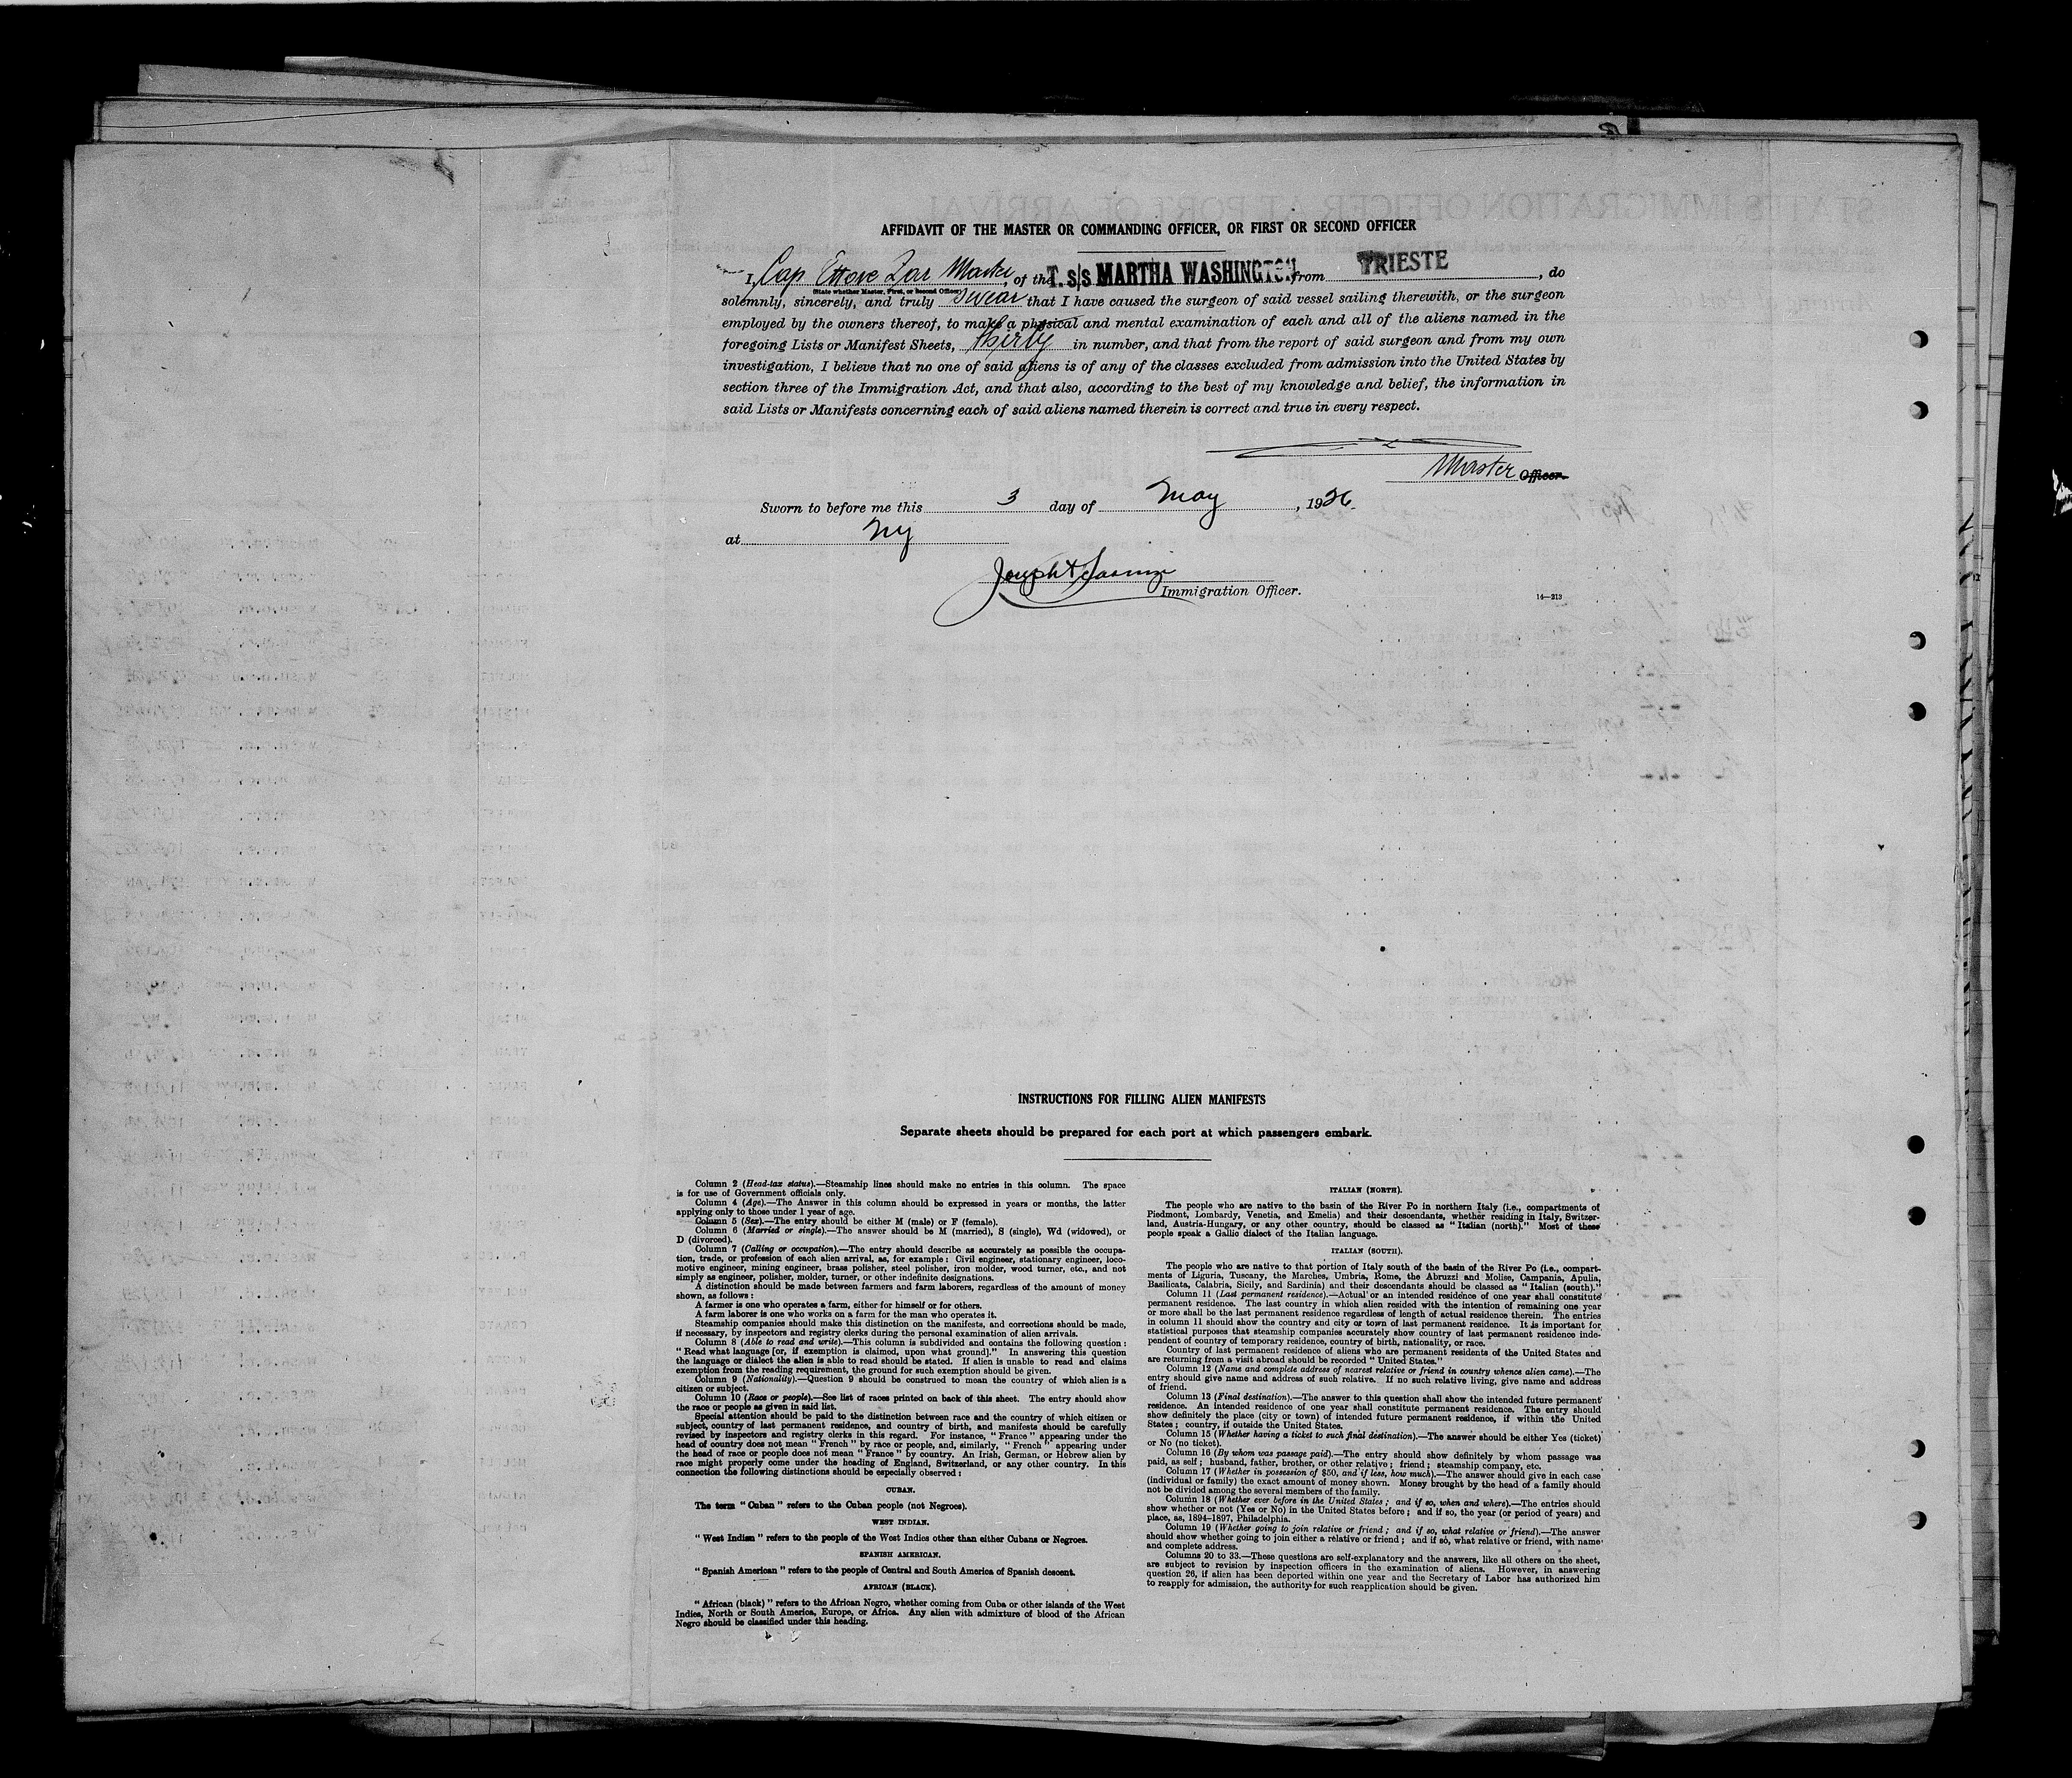 AFFIDAVIT OF THE MASTER OR COMMANDING OFFICER, OR FIRST OR SECOND OFFICER
I, Cap Ettore Zar Master, of the T. s/s MARTHA WASHINGTON from TRIESTE, do
(State whether Master, First, or Second Officer)
solemnly, sincerely, and truly swear that I have caused the surgeon of said vessel sailing therewith, or the surgeon
employed by the owners thereof, to make a physical and mental examination of each and all of the aliens named in the
foregoing Lists or Manifest Sheets, thirty in number, and that from the report of said surgeon and from my own
investigation, I believe that no one of said aliens is of any of the classes excluded from admission into the United States by
section three of the Immigration Act, and that also, according to the best of my knowledge and belief, the information in
said Lists or Manifests concerning each of said aliens named therein is correct and true in every respect.
Master Officer.
Sworn to before me this 3 day of May, 1926.
at NY
Joseph
Immigration Officer.
14—213
INSTRUCTIONS FOR FILLING ALIEN MANIFESTS
Separate sheets should be prepared for each port at which passengers embark.
Column 2 (Head-tax status).—Steamship lines should make no entries in this column. The space
is for use of Government officials only.
Column 4 (Age).—The Answer in this column should be expressed in years or months, the latter
applying only to those under 1 year of age.
Column 5 (Sex).—The entry should be either M (male) or F (female).
Column 6 (Married or single).—The answer should be M (married), S (single), Wd (widowed), or
D (divorced).
Column 7 (Calling or occupation).—The entry should describe as accurately as possible the occupa-
tion, trade, or profession of each alien arrival, as, for example: Civil engineer, stationary engineer, loco-
motive engineer, mining engineer, brass polisher, steel polisher, iron molder, wood turner, etc., and not
simply as engineer, polisher, molder, turner, or other indefinite designations.
A distinction should be made between farmers and farm laborers, regardless of the amount of money
shown, as follows:
A farmer is one who operates a farm, either for himself or for others.
A farm laborer is one who works on a farm for the man who operates it.
Steamship companies should make this distinction on the manifests, and corrections should be made,
if necessary, by inspectors and registry clerks during the personal examination of alien arrivals.
Column 8 (Able to read and write).—This column is subdivided and contains the following question:
"Read what language [or, if exemption is claimed, upon what ground]." In answering this question
the language or dialect the alien is able to read should be stated. If alien is unable to read and claims
exemption from the reading requirement, the ground for such exemption should be given.
Column 9 (Nationality).—Question 9 should be construed to mean the country of which alien is a
citizen or subject.
Column 10 (Race or people).—See list of races printed on back of this sheet. The entry should show
the race or people as given in said list.
Special attention should be paid to the distinction between race and the country of which citizen or
subject, country of last permanent residence, and country of birth, and manifests should be carefully
revised by inspectors and registry clerks in this regard. For instance, "France" appearing under the
head of country does not mean "French" by race or people, and, similarly, "French" appearing under
the head of race or people does not mean "France" by country. An Irish, German, or Hebrew alien by
race might properly come under the heading of England, Switzerland, or any other country. In this
connection the following distinctions should be especially observed:
CUBAN.
The term "Cuban" refers to the Cuban people (not Negroes).
WEST INDIAN.
"West Indian" refers to the people of the West Indies other than either Cubans or Negroes.
SPANISH AMERICAN.
"Spanish American" refers to the people of Central and South America of Spanish descent.
AFRICAN (BLACK).
"African (black)" refers to the African Negro, whether coming from Cuba or other islands of the West
Indies, North or South America, Europe, or Africa. Any alien with admixture of blood of the African
Negro should be classified under this heading.
ITALIAN (NORTH).
The people who are native to the basin of the River Po in northern Italy (i.e., compartments of
Piedmont, Lombardy, Venetia, and Emelia) and their descendants, whether residing in Italy, Switzer-
land, Austria-Hungary, or any other country, should be classed as "Italian (north)." Most of these
people speak a Gallic dialect of the Italian language.
ITALIAN (SOUTH).
The people who are native to that portion of Italy south of the basin of the River Po (i.e., compart-
ments of Liguria, Tuscany, the Marches, Umbria, Rome, the Abruzzi and Molise, Campania, Apulia,
Basilicata, Calabria, Sicily, and Sardinia) and their descendants should be classed as "Italian (south)."
Column 11 (Last permanent residence).—Actual or an intended residence of one year shall constitute
permanent residence. The last country in which alien resided with the intention of remaining one year
or more shall be the last permanent residence regardless of length of actual residence therein. The entries
in column 11 should show the country and city or town of last permanent residence. It is important for
statistical purposes that steamship companies accurately show country of last permanent residence inde-
pendent of country of temporary residence, country of birth, nationality, or race.
Country of last permanent residence of aliens who are permanent residents of the United States and
are returning from a visit abroad should be recorded "United States."
Column 12 (Name and complete address of nearest relative or friend in country whence alien came).—The
entry should give name and address of such relative. If no such relative living, give name and address
of friend.
Column 13 (Final destination).—The answer to this question shall show the intended future permanent
residence. An intended residence of one year shall constitute permanent residence. The entry should
show definitely the place (city or town) of intended future permanent residence, if within the United
States; country, if outside the United States.
Column 15 (Whether having a ticket to such final destination).—The answer should be either Yes (ticket)
or No (no ticket).
Column 16 (By whom was passage paid).—The entry should show definitely by whom passage was
paid, as self; husband, father, brother, or other relative; friend; steamship company, etc.
Column 17 (Whether in possession of $50, and if less, how much).—The answer should give in each case
(individual or family) the exact amount of money shown. Money brought by the head of a family should
not be divided among the several members of the family.
Column 18 (Whether ever before in the United States; and if so, when and where).—The entries should
show whether or not (Yes or No) in the United States before; and if so, the year (or period of years) and
place, as, 1894-1897, Philadelphia.
Column 19 (Whether going to join relative or friend; and if so, what relative or friend).—The answer
should show whether going to join either a relative or friend; and if so, what relative or friend, with name
and complete address.
Columns 20 to 33.—These questions are self-explanatory and the answers, like all others on the sheet,
are subject to revision by inspection officers in the examination of aliens. However, in answering
question 26, if alien has been deported within one year and the Secretary of Labor has authorized him
to reapply for admission, the authority for such reapplication should be given.